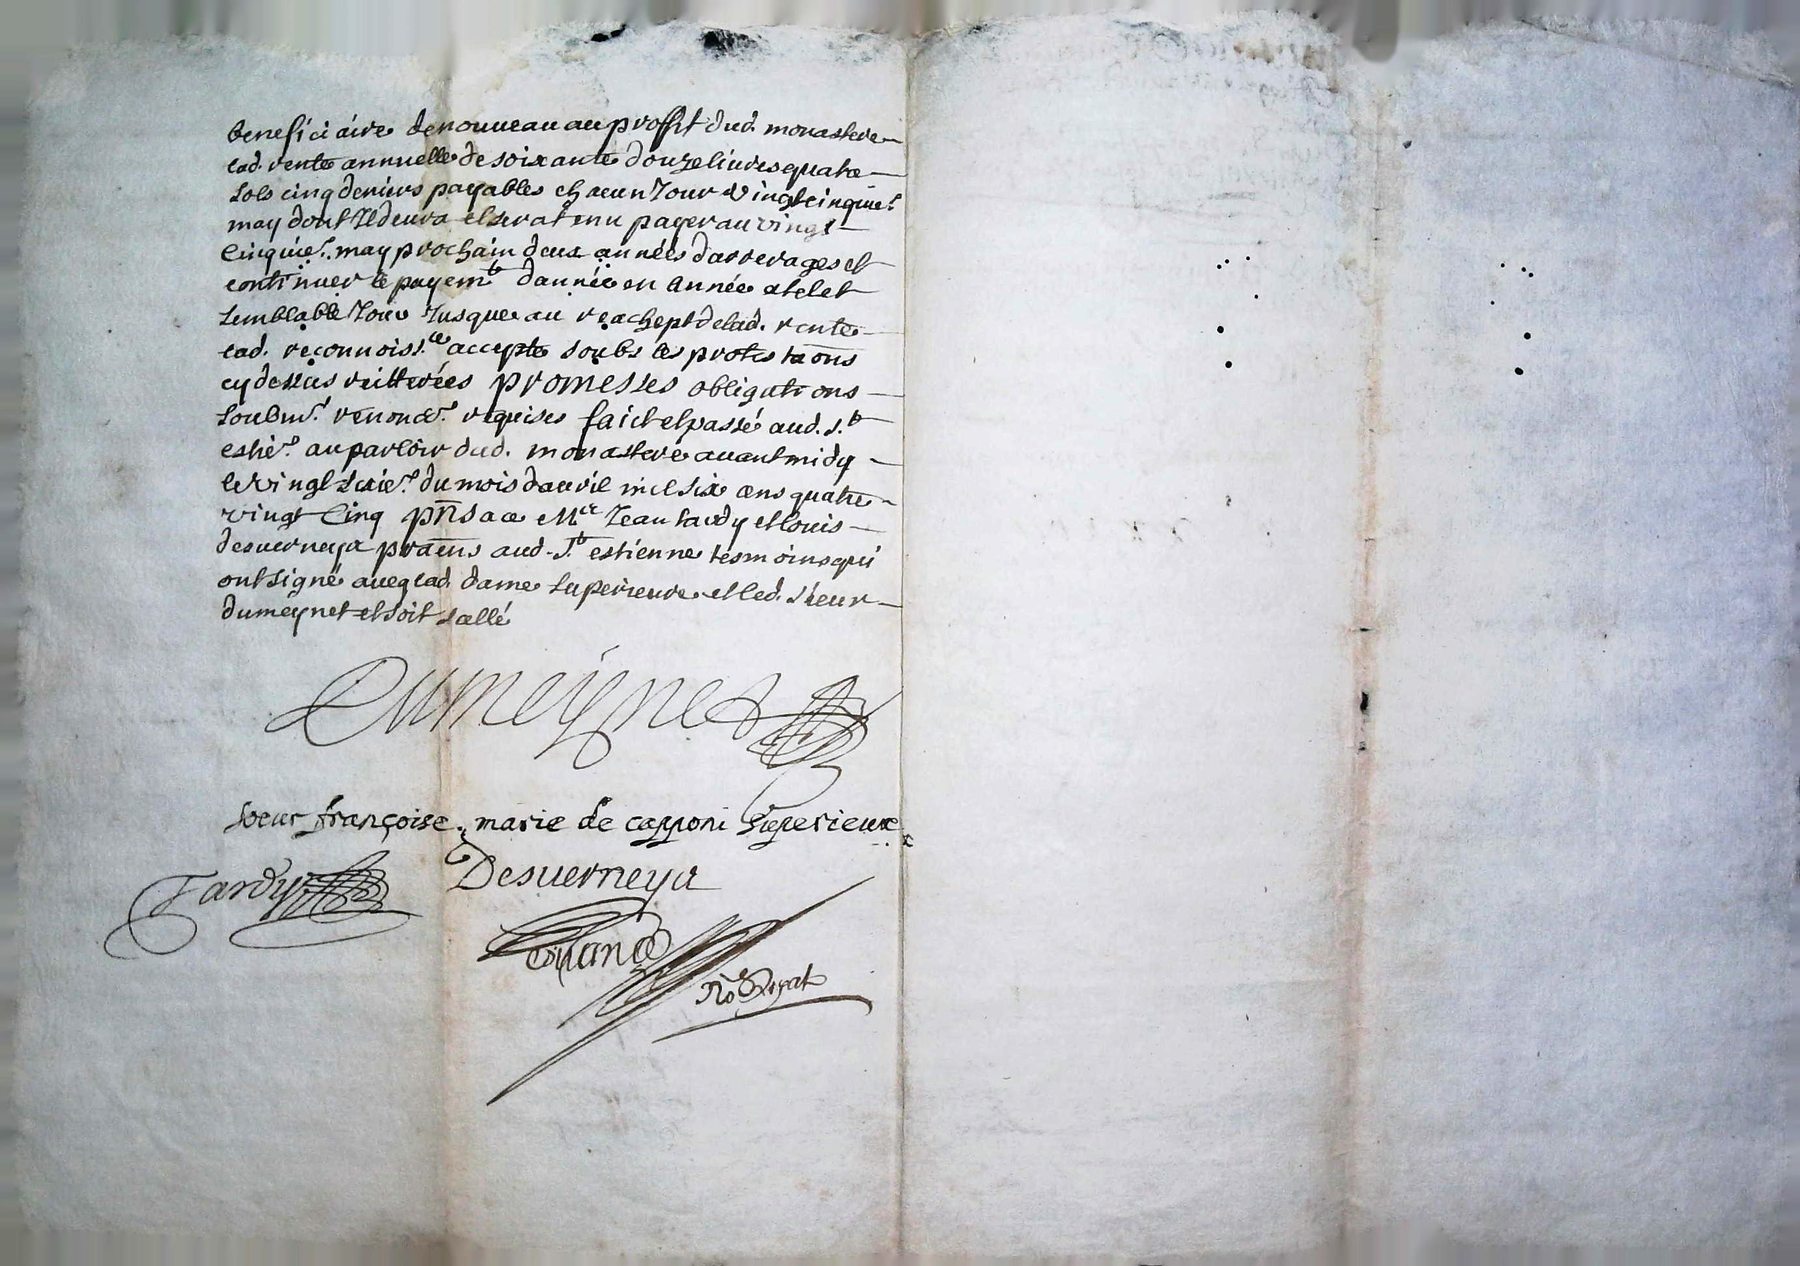 beneficiaire denouveau au proffit dud. monastere
lad. rente annuelle de soixante douze livres quatre
sols cinq deniers payables chacun Jour Vingtcinquie.e
may dont Il devra et sera tenu payer au vingt
cinquie.e may prochain deux années darrerages et
continuer le payem.t dannée en année a tel et
semblable Jour Jusques au reachept delad. rente
lad. reconnoiss.ce accepte soubs les protestaons
cy dessus reitterées promesses obligations
soubm.s renonce.s requises faict et passé aud. s.t
estie.e au parloir dud. monastere avant midy
le Vingt sixie.e du mois davril mil six cens quatre
vingt Cinq pns a ce Mes Jean tardy et Louis
desverneya praens aud. s.t estienne tesmoins qui
ont signé avecq lad. dame superieure et led. sieur
dumeynet et soit scellé
Dumeynet
soeur françoise marie de capponi superieure
Tardy Desverneya
No Royal